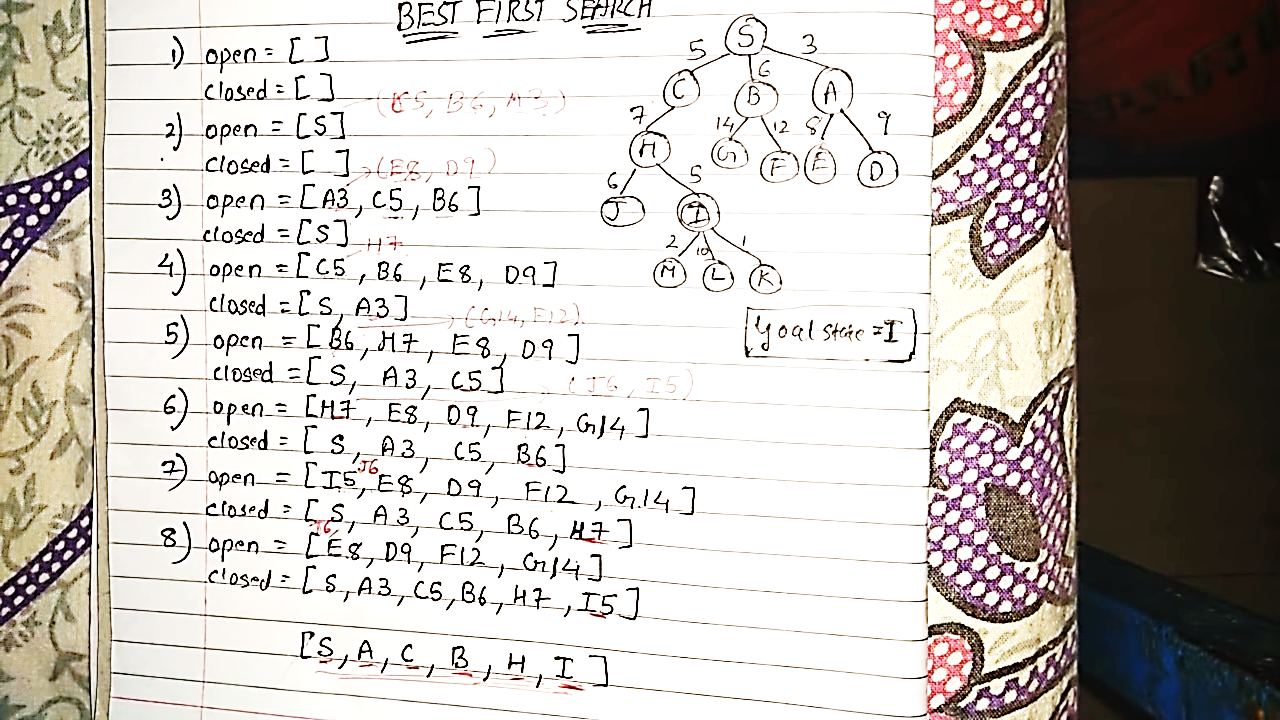 BEST FIRST SEARCH
1) open = [ ]
closed = [ ]
(C5, B6, A3)
2) open = [S]
closed = [ ]
(E8, D9)
3) open = [A3, C5, B6]
closed = [S]
H7
4) open = [C5, B6, E8, D9]
closed = [S, A3]
(G14, F12)
5) open = [B6, H7, E8, D9]
closed = [S, A3, C5]
(J6, I5)
6) open = [H7, E8, D9, F12, G14]
closed = [S, A3, C5, B6]
J6
7) open = [I5, E8, D9, F12, G14]
closed = [S, A3, C5, B6, H7]
J6
8) open = [E8, D9, F12, G14]
closed = [S, A3, C5, B6, H7, I5]
[S, A, C, B, H, I]
S
5 6 3
C B A
7 14 12 8 9
H G F E D
6 5
J I
2 10 1
M L K
Goal state = I